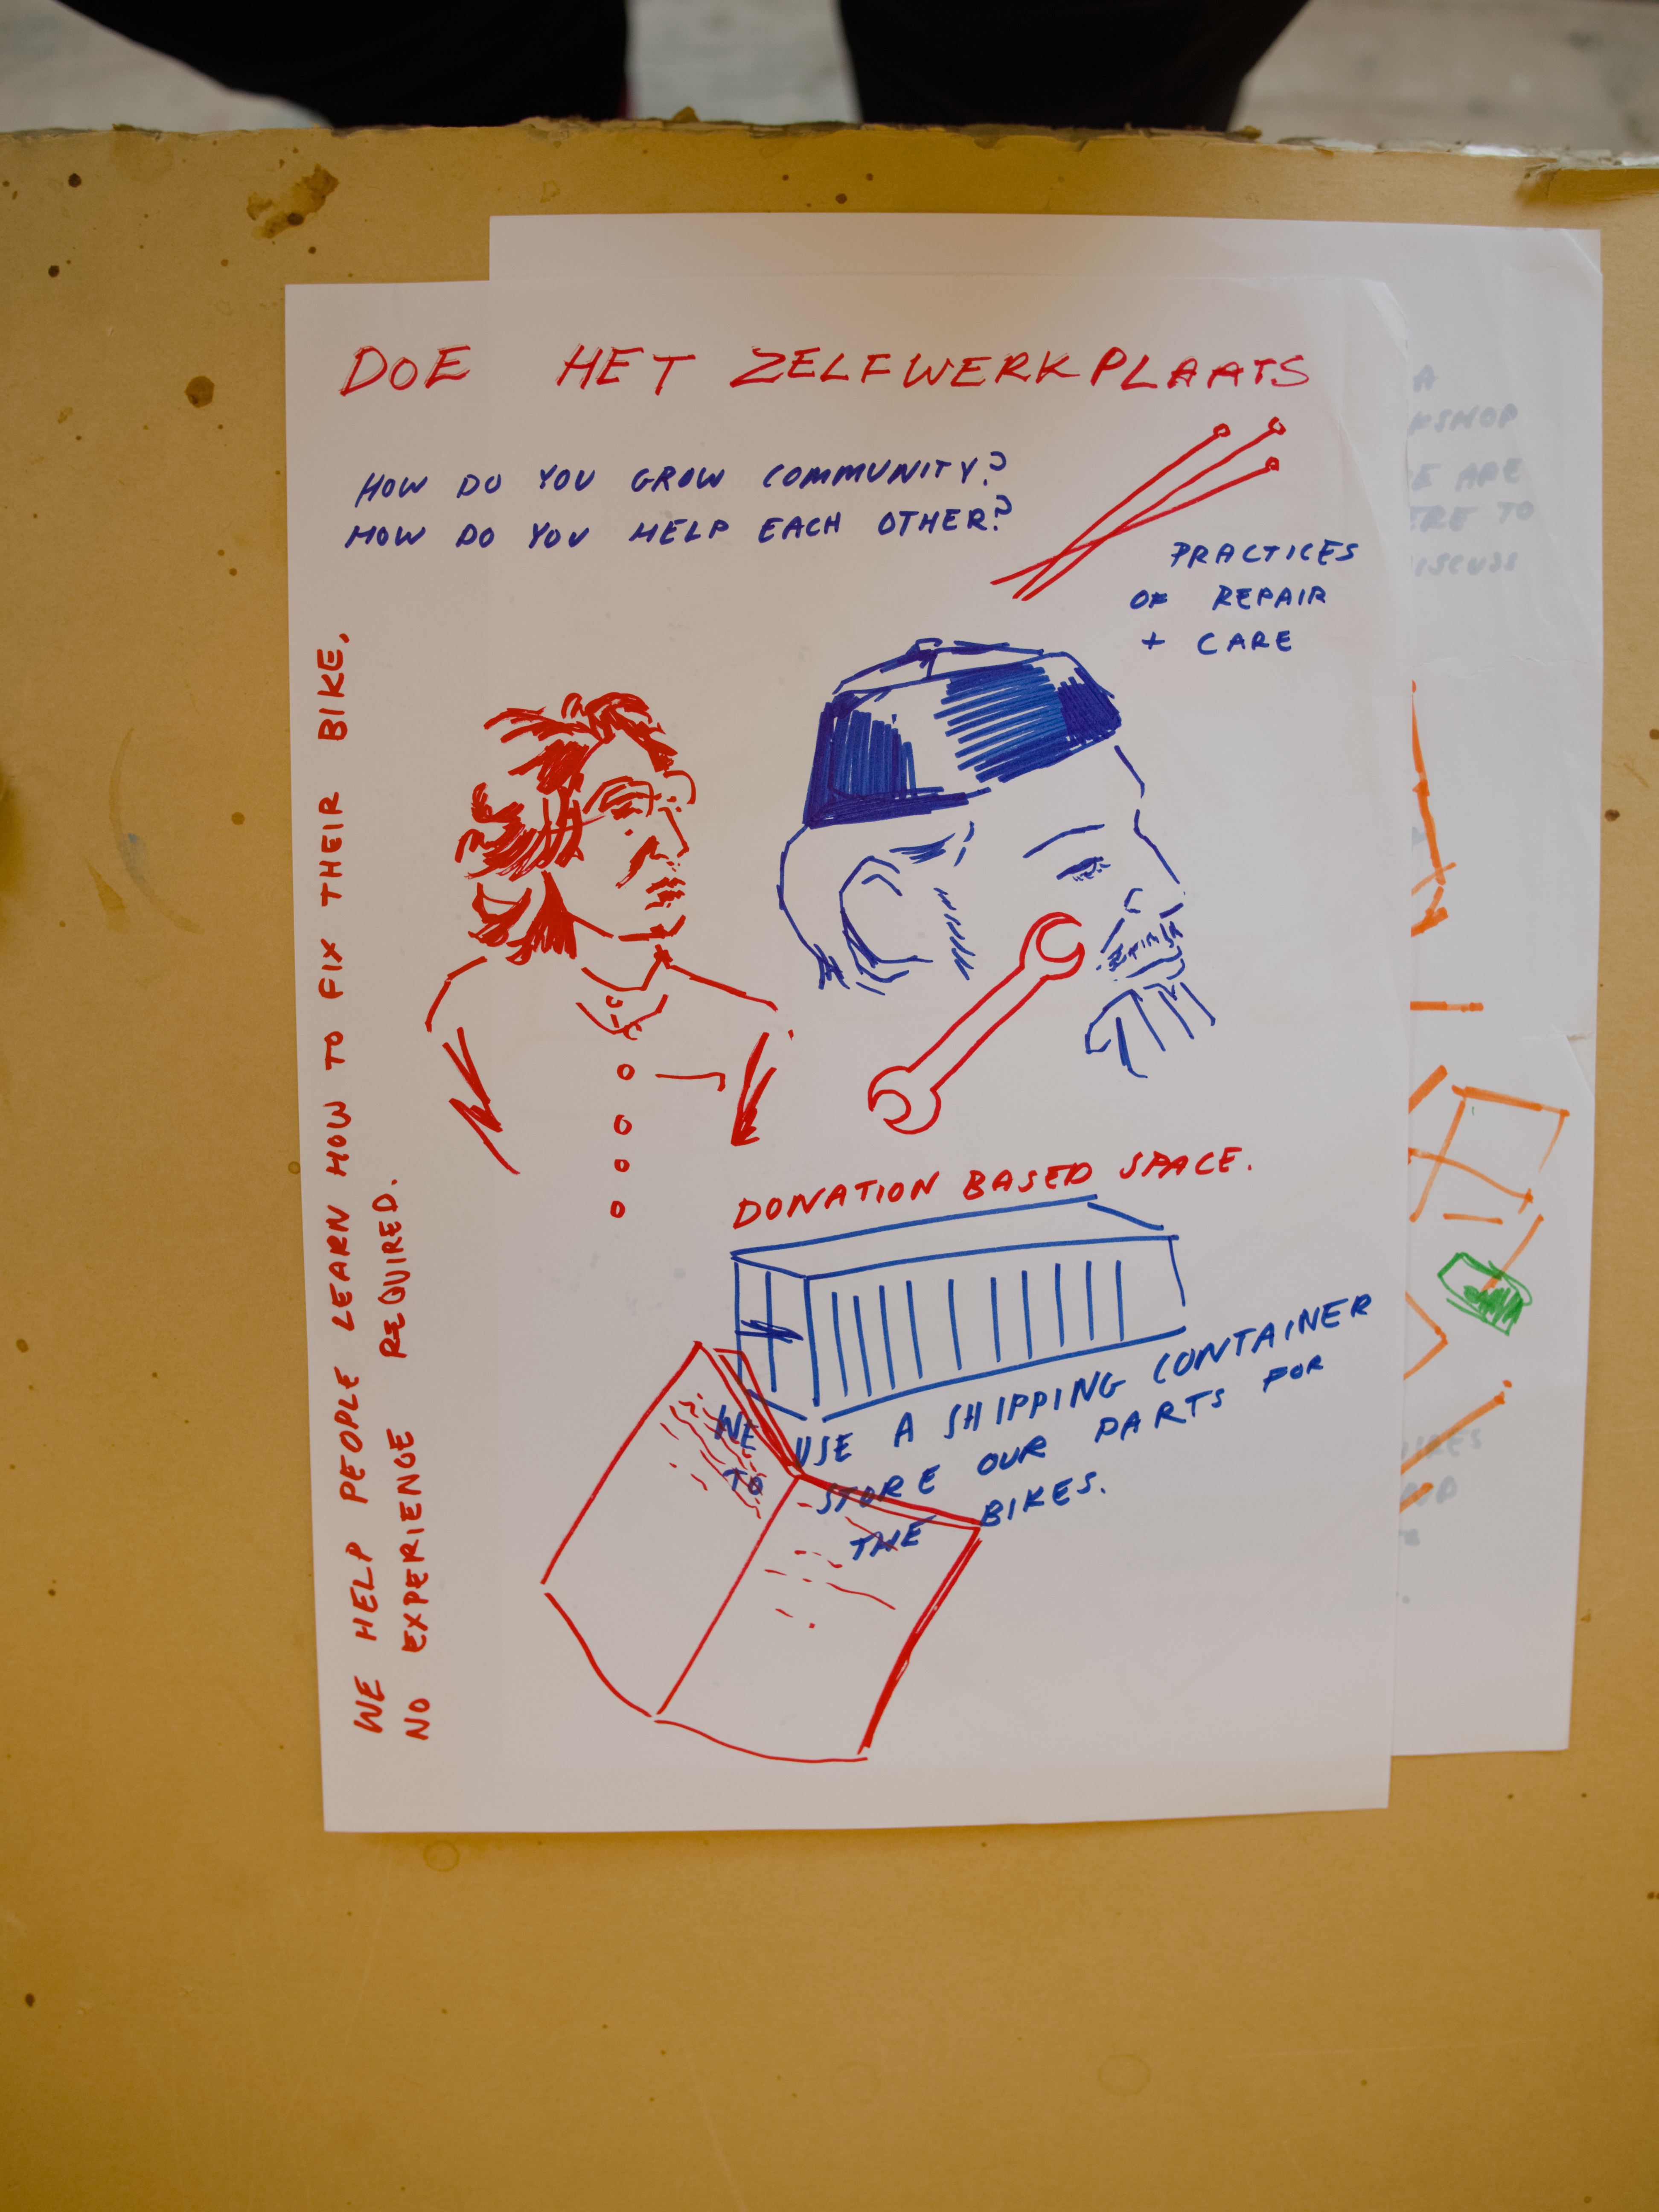 DOE HET ZELFWERKPLAATS
HOW DO YOU GROW COMMUNITY?
HOW DO YOU HELP EACH OTHER?
PRACTICES
OF REPAIR
+ CARE
WE HELP PEOPLE LEARN HOW TO FIX THEIR BIKE.
NO EXPERIENCE REQUIRED.
DONATION BASED SPACE.
WE USE A SHIPPING CONTAINER
TO STORE OUR PARTS FOR
THE BIKES.
A
KSHOP
E ARE
ERE TO
ISCUSS